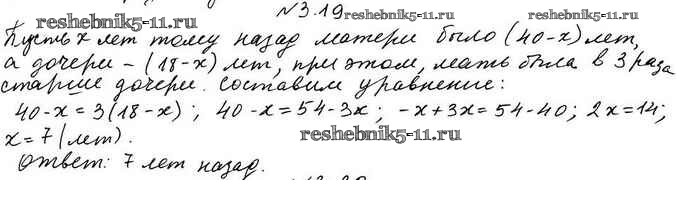 №3.19
reshebnik5-11.ru reshebnik5-11.ru
Пусть x лет тому назад матери было (40-x) лет,
а дочери – (18-x) лет, при этом, мать была в 3 раза
старше дочери. Составим уравнение:
40-x=3(18-x); 40-x=54-3x; -x+3x=54-40; 2x=14;
x=7 (лет).
reshebnik5-11.ru
Ответ: 7 лет назад.